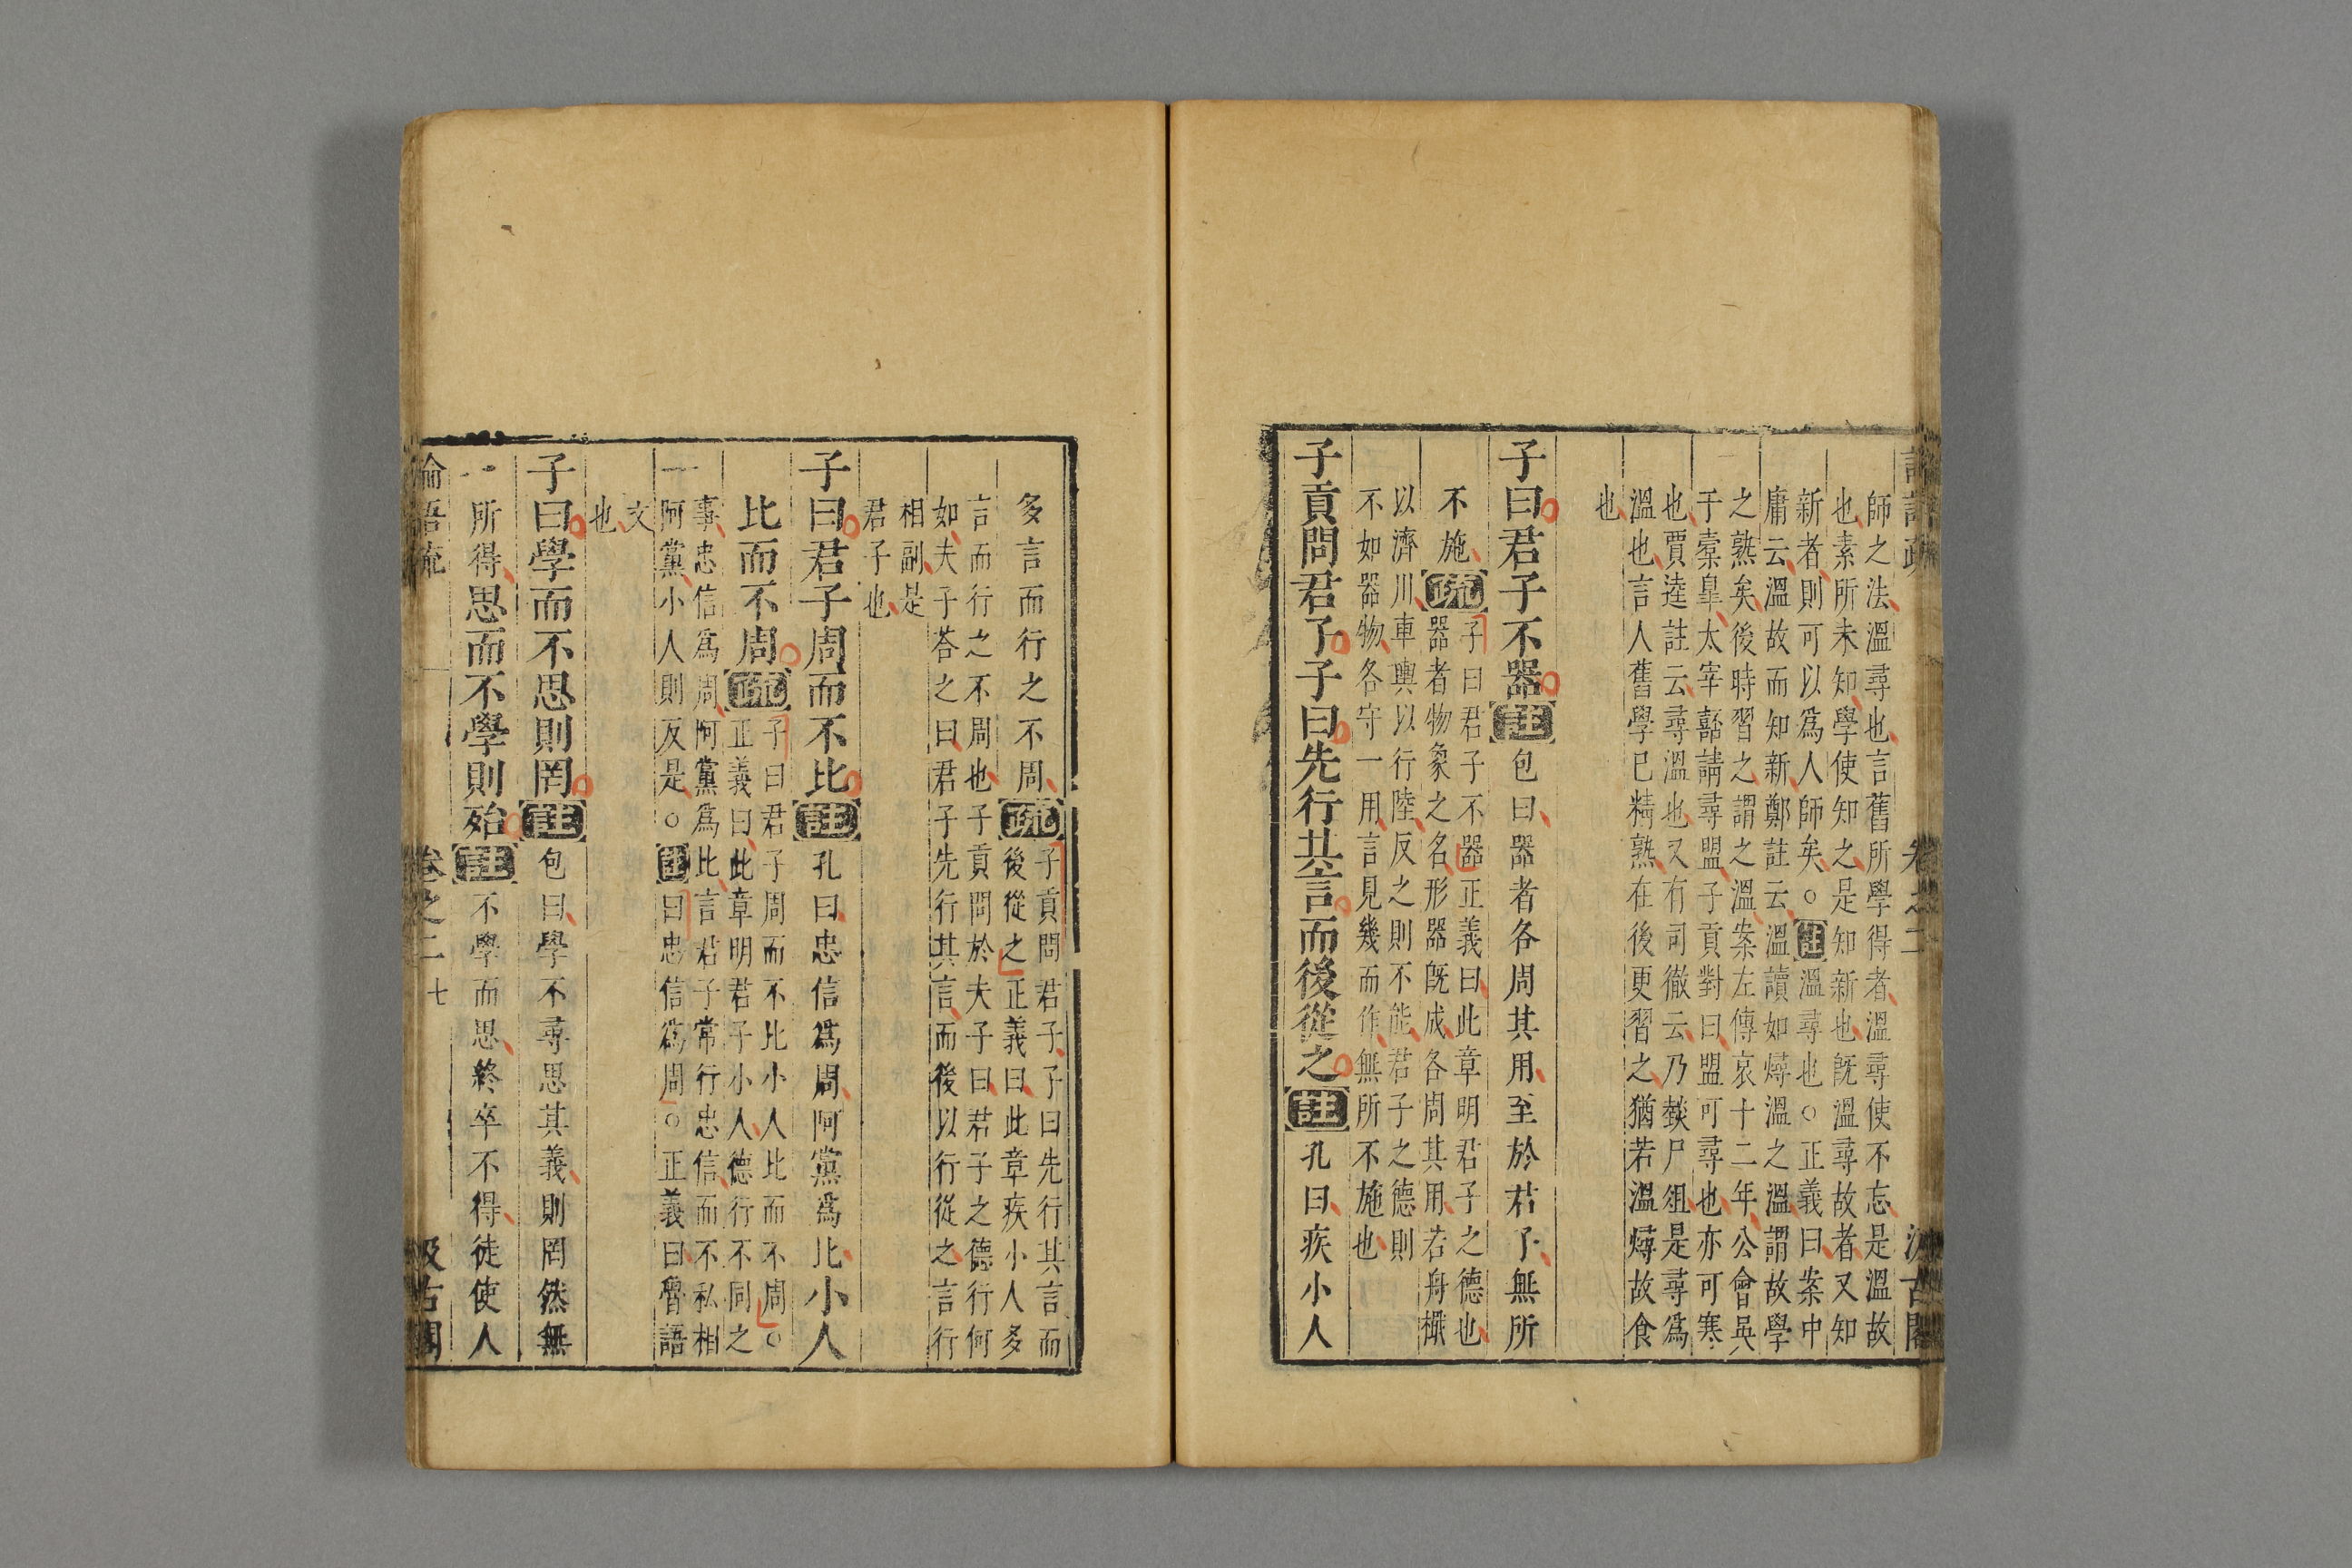 師之法溫尋也言舊所學得者溫尋使不忘是溫故
也素所未知學使知之是知新也旣溫尋故者又知
新者則可以爲人師矣○註溫尋也○正義曰案中
庸云溫故而知新鄭註云溫讀如燖溫之溫謂故學
之熟矣後時習之謂之溫案左傳哀十二年公會吳
于橐臯太宰嚭請尋盟子貢對曰盟可尋也亦可寒
也賈逵註云尋溫也又有司徹云乃燅尸俎是尋爲
溫也言人舊學已精熟在後更習之猶若溫燖故食
也
子曰君子不器註包曰器者各周其用至於君子無所
不施疏子曰君子不器正義曰此章明君子之德也
器者物象之名形器旣成各周其用若舟檝
以濟川車輿以行陸反之則不能君子之德則
不如器物各守一用言見幾而作無所不施也
子貢問君子子曰先行其言而後從之註孔曰疾小人
多言而行之不周疏子貢問君子子曰先行其言而
後從之正義曰此章疾小人多
言而行之不周也子貢問於夫子曰君子之德行何
如夫子荅之曰君子先行其言而後以行從之言行
相副是
君子也
子曰君子周而不比註孔曰忠信爲周阿黨爲比小人
比而不周疏子曰君子周而不比小人比而不周○
正義曰此章明君子小人德行不同之
事忠信爲周阿黨爲比言君子常行忠信而不私相
阿黨小人則反是○註曰忠信爲周○正義曰魯語
文
也
子曰學而不思則罔註包曰學不尋思其義則罔然無
所得思而不學則殆註不學而思終卒不得徒使人
論語疏 卷之二 七 汲古閣